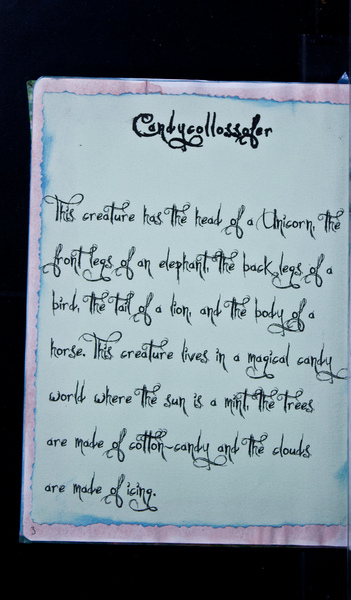 Candycollossofer
This creature has the head of a Unicorn, the
front legs of an elephant, the back legs of a
bird, the tail of a lion, and the body of a
horse. This creature lives in a magical candy
world where the sun is a mint, the trees
are made of cotton-candy and the clouds
are made of icing.
3